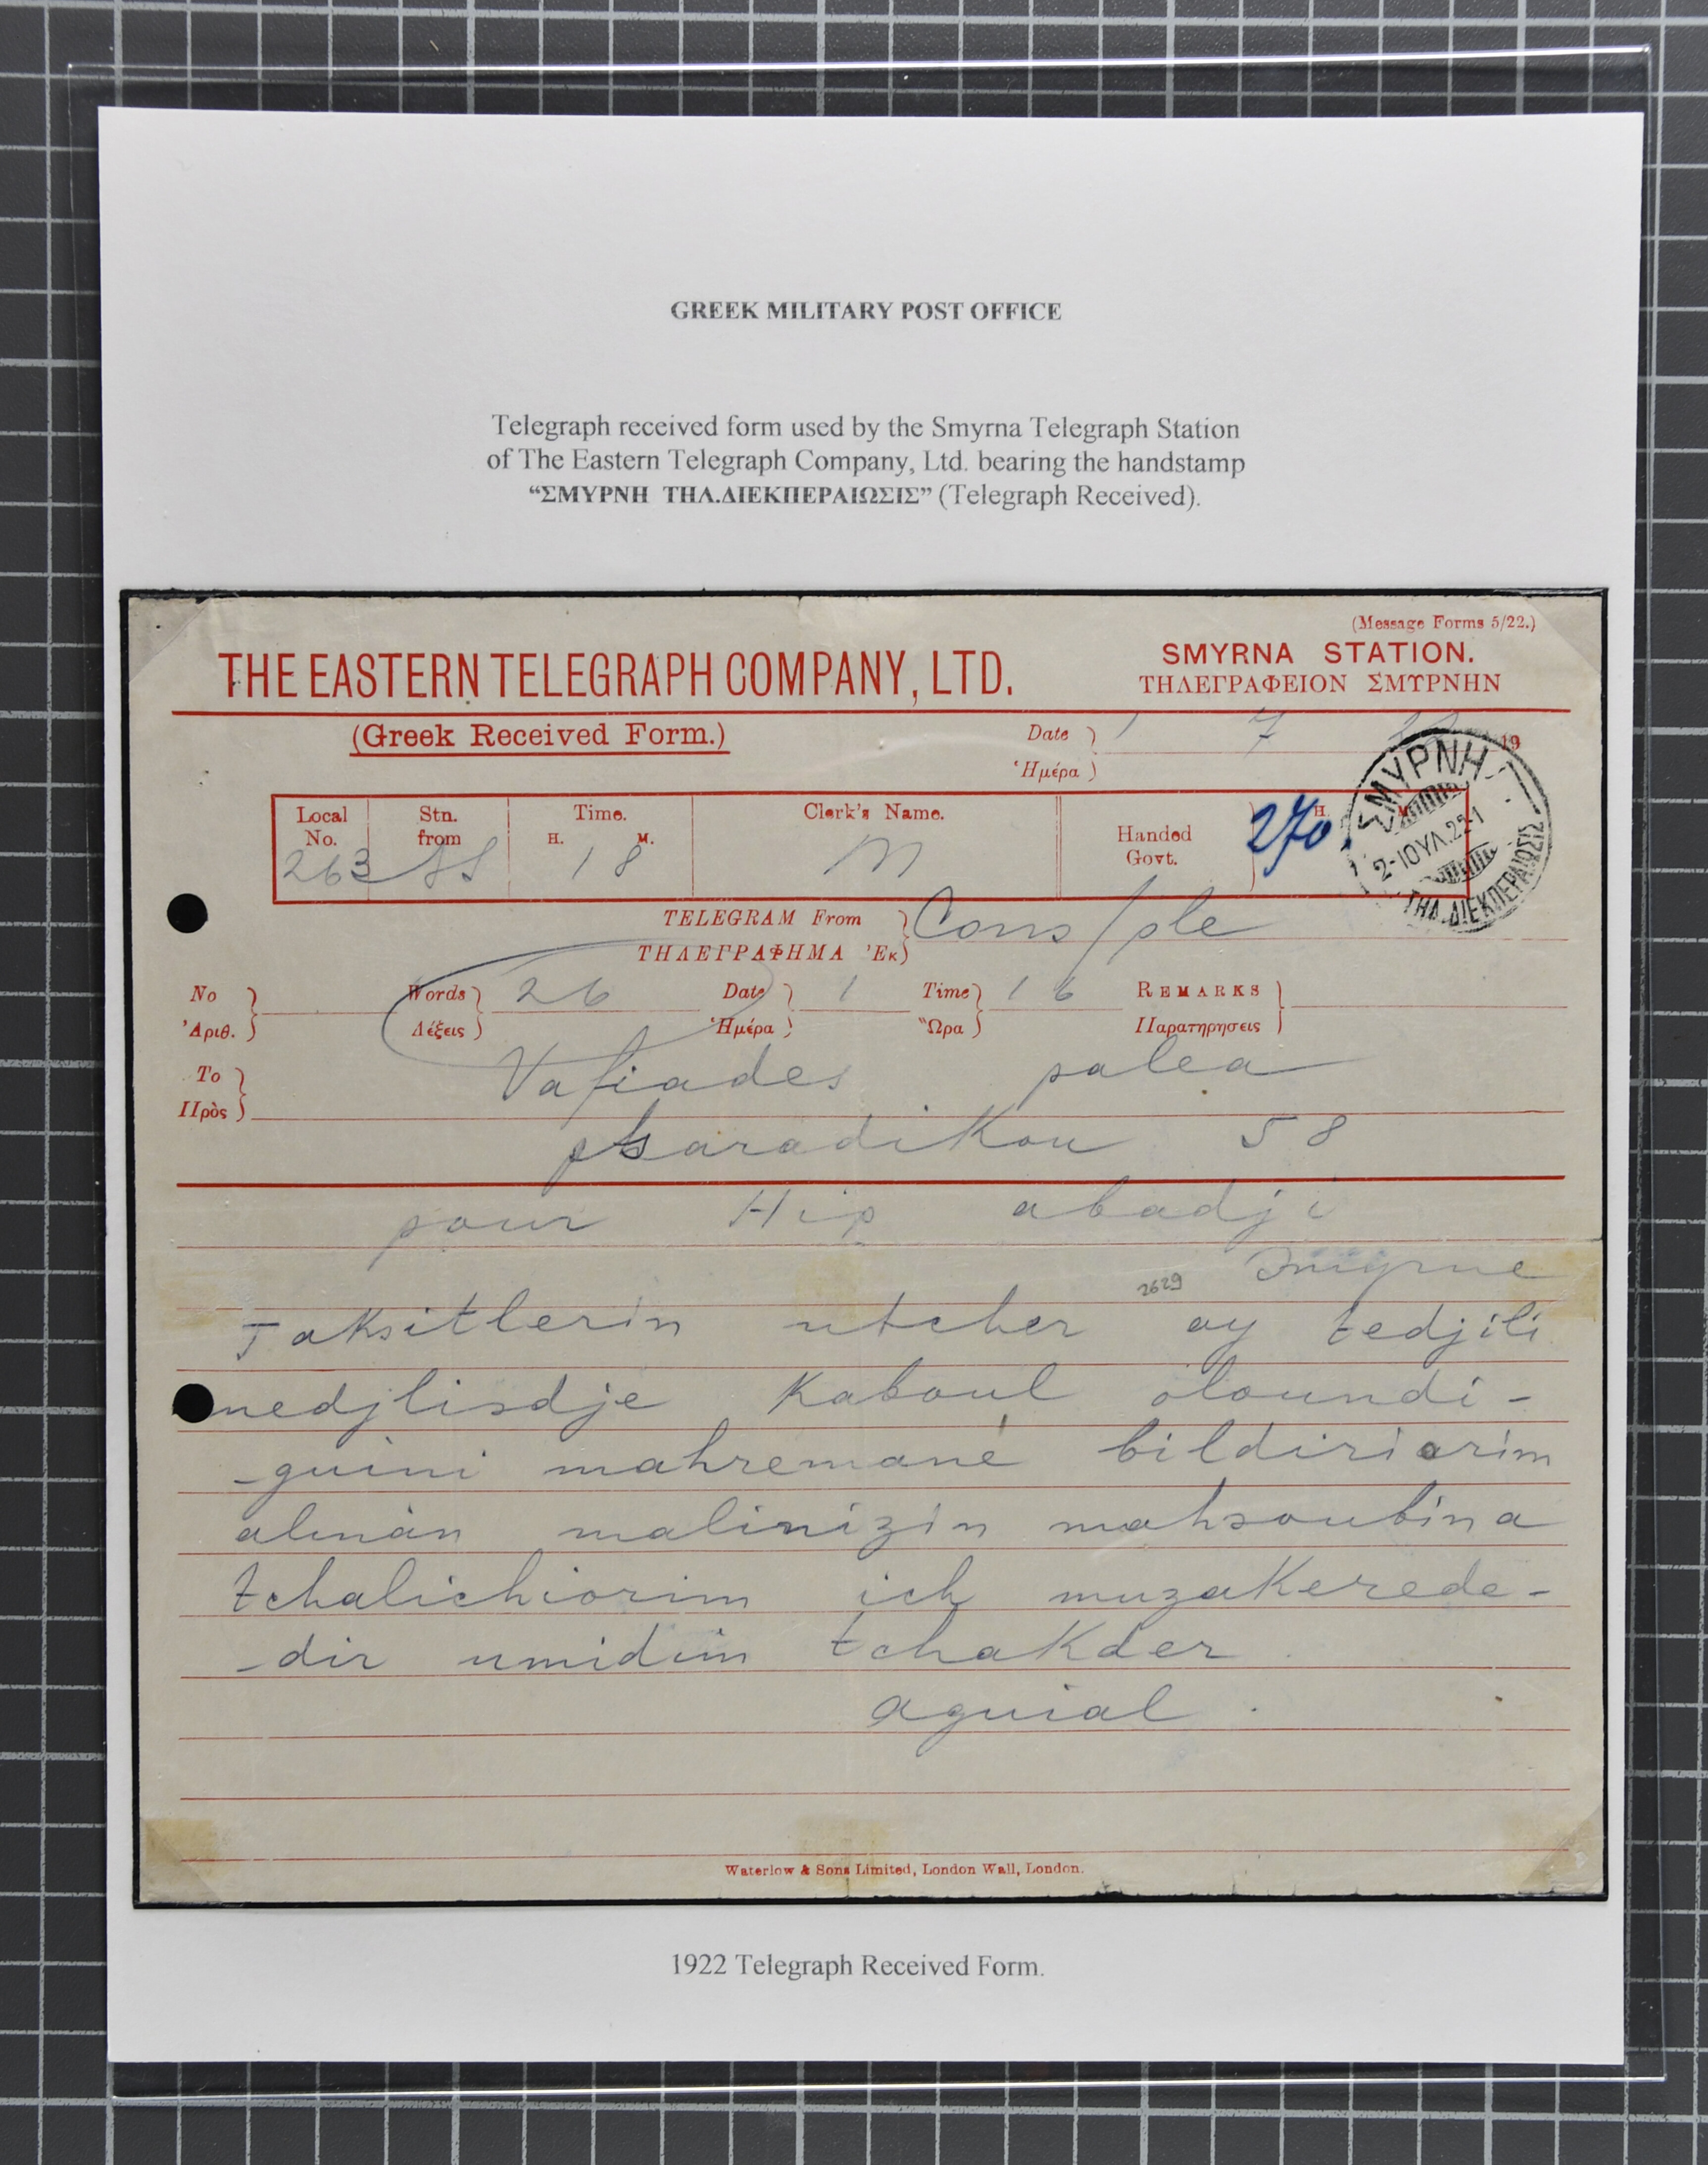 GREEK MILITARY POST OFFICE
Telegraph received form used by the Smyrna Telegraph Station
of The Eastern Telegraph Company, Ltd. bearing the handstamp
“ΣΜΥΡΝΗ ΤΗΛ.ΔΙΕΚΠΕΡΑΙΩΣΙΣ” (Telegraph Received).
(Message Forms 5/22.)
THE EASTERN TELEGRAPH COMPANY, LTD.
SMYRNA STATION.
ΤΗΛΕΓΡΑΦΕΙΟΝ ΣΜΥΡΝΗΝ
(Greek Received Form.)
Date 1 7 19
Ἡμέρα
Local No. Stn. from Time. H. M. Clerk's Name. Handed Govt. H. M.
263 18 M 270
ΣΜΥΡΝΗ
2-ΙΟΥΛ.22-1
ΤΗΛ.ΔΙΕΚΠΕΡΑΙΩΣΙΣ
TELEGRAM From Cons/ple
ΤΗΛΕΓΡΑΦΗΜΑ Ἐκ
No Words 26 Date 1 Time 16 REMARKS
Ἀριθ. Λέξεις Ἡμέρα Ὥρα Παρατηρησεις
To Vafiades palea
Πρὸς
psaradikou 58
pour Hip abadji
Smyrne
2629
Taksitlerin utcher ay tedjili
medjlisdje Kaboul oloundi-
-guini mahremane bildiriorim
alman malinizin mahsoubina
tchalichiorim ich muzakerede-
-dir umidim tchakder
aguial.
Waterlow & Sons Limited, London Wall, London.
1922 Telegraph Received Form.